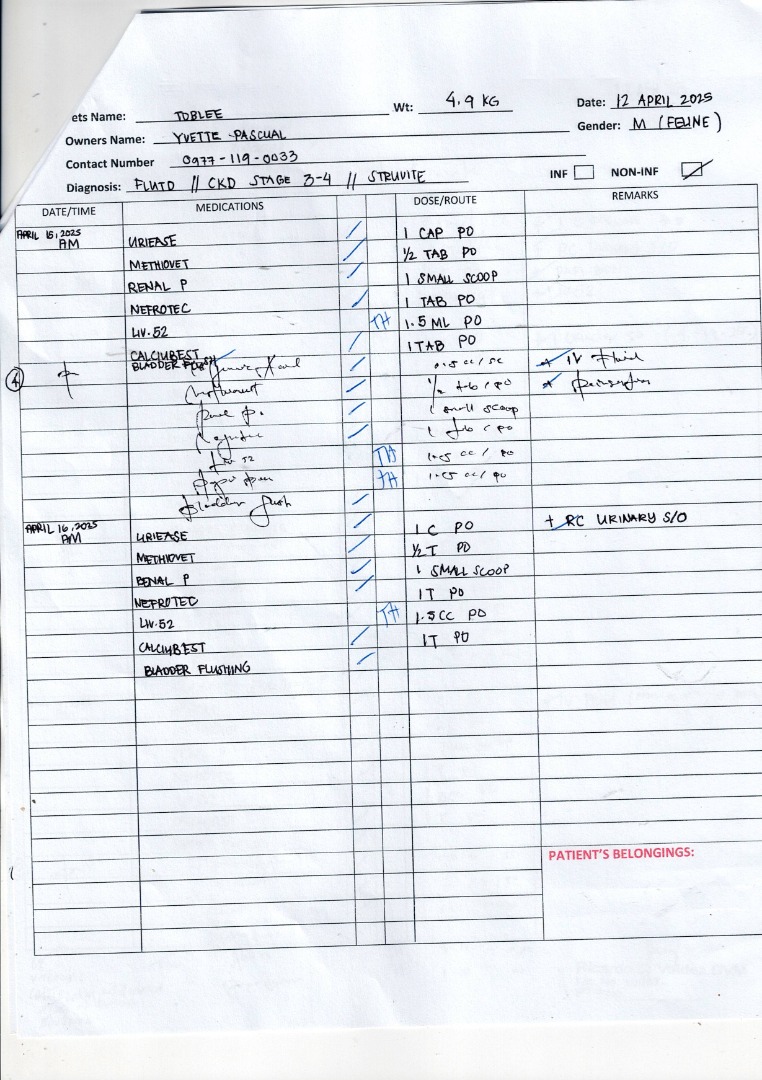 ets Name: TOBLEE Wt: 4.9 KG Date: 12 APRIL 2025
Owners Name: YVETTE PASCUAL Gender: M (FELINE)
Contact Number 0977-119-0033
Diagnosis: FLUTD // CKD STAGE 3-4 // STRUVITE INF NON-INF
DATE/TIME MEDICATIONS DOSE/ROUTE REMARKS
APRIL 15, 2025 AM URIEASE 1 CAP PO
METHIOVET 1/2 TAB PO
RENAL P 1 SMALL SCOOP
NEFROTEC 1 TAB PO
LIV.52 TH 1.5 ML PO
CALCIUMBEST 1 TAB PO
BLADDER FLUSH 0.5 cc/sc + IV Fluid
4 1/2 tab / po
1 small scoop
1 tab / po
Liv 52 TH 1.5 cc / po
TH 1.5 cc / po
Bladder flush
APRIL 16, 2025 AM URIEASE 1 C PO + RC URINARY S/O
METHIOVET 1/2 T PO
RENAL P 1 SMALL SCOOP
NEFROTEC 1T PO
LIV.52 TH 1.5CC PO
CALCIUMBEST 1T PO
BLADDER FLUSHING
PATIENT'S BELONGINGS: